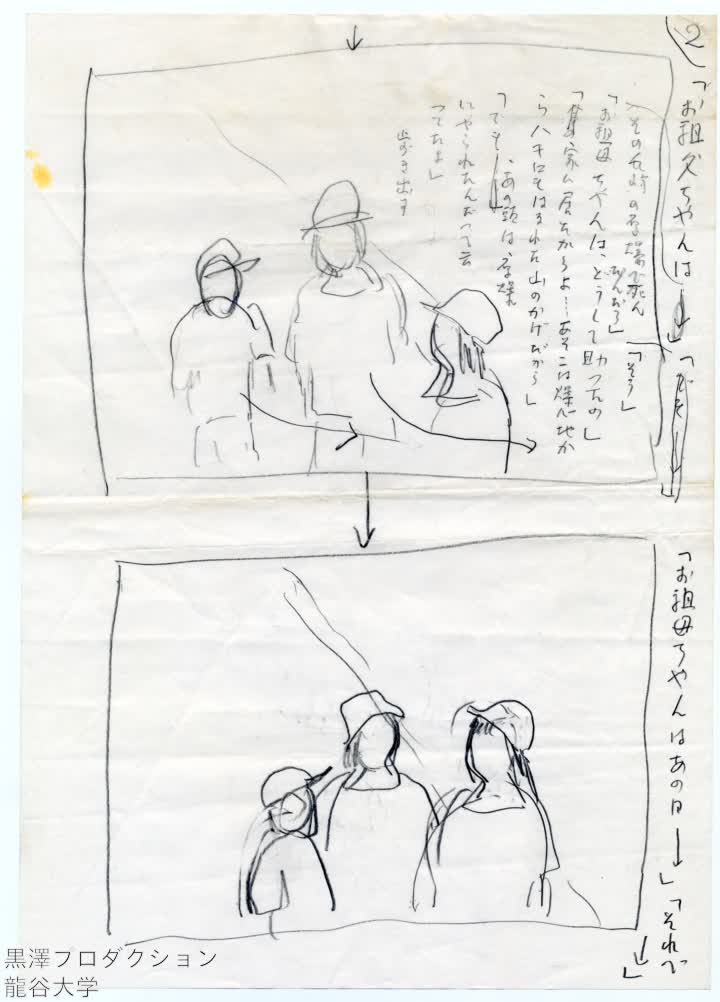 2
「お祖父ちゃんは↓」「だって↓」
「その長崎の原爆で死んだんだろ」「そう」
「お祖母ちゃんは、どうして助ったの」
「家に居たからよ…あそこは爆心地か
らハキロもはなれた山のかげだから」
「でも↓、あの頭は、原爆
にやられたんだって云
ってたよ」
歩き出す
「お祖母ちゃんはあの日↓」「それで↓」
黒澤プロダクション
龍谷大学